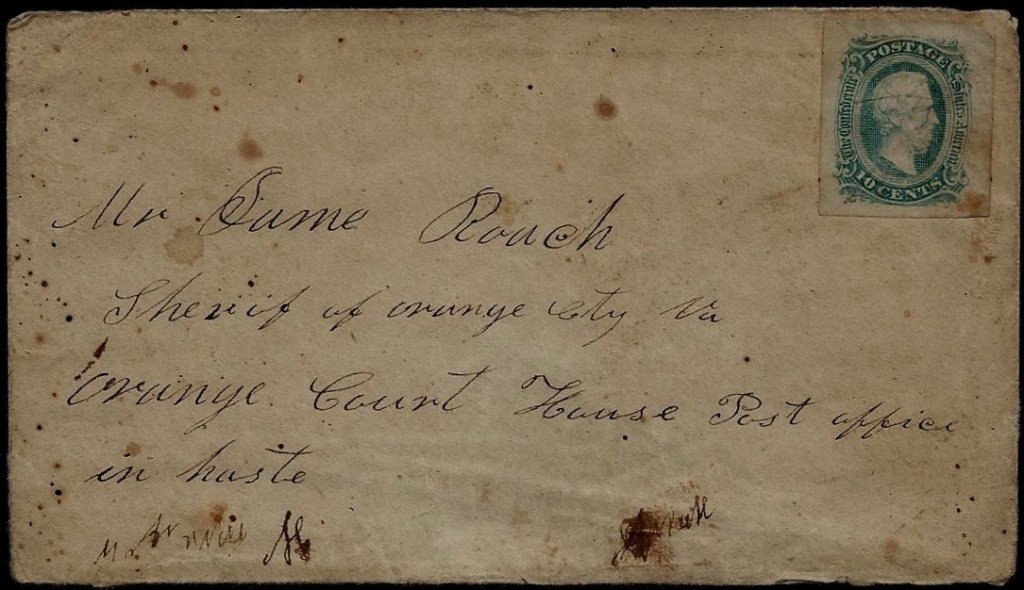 POSTAGE
The Confederate States America
10 CENTS
Mr Jame Roach
Sherif of orange Cty Va
orange Court House Post office
in haste